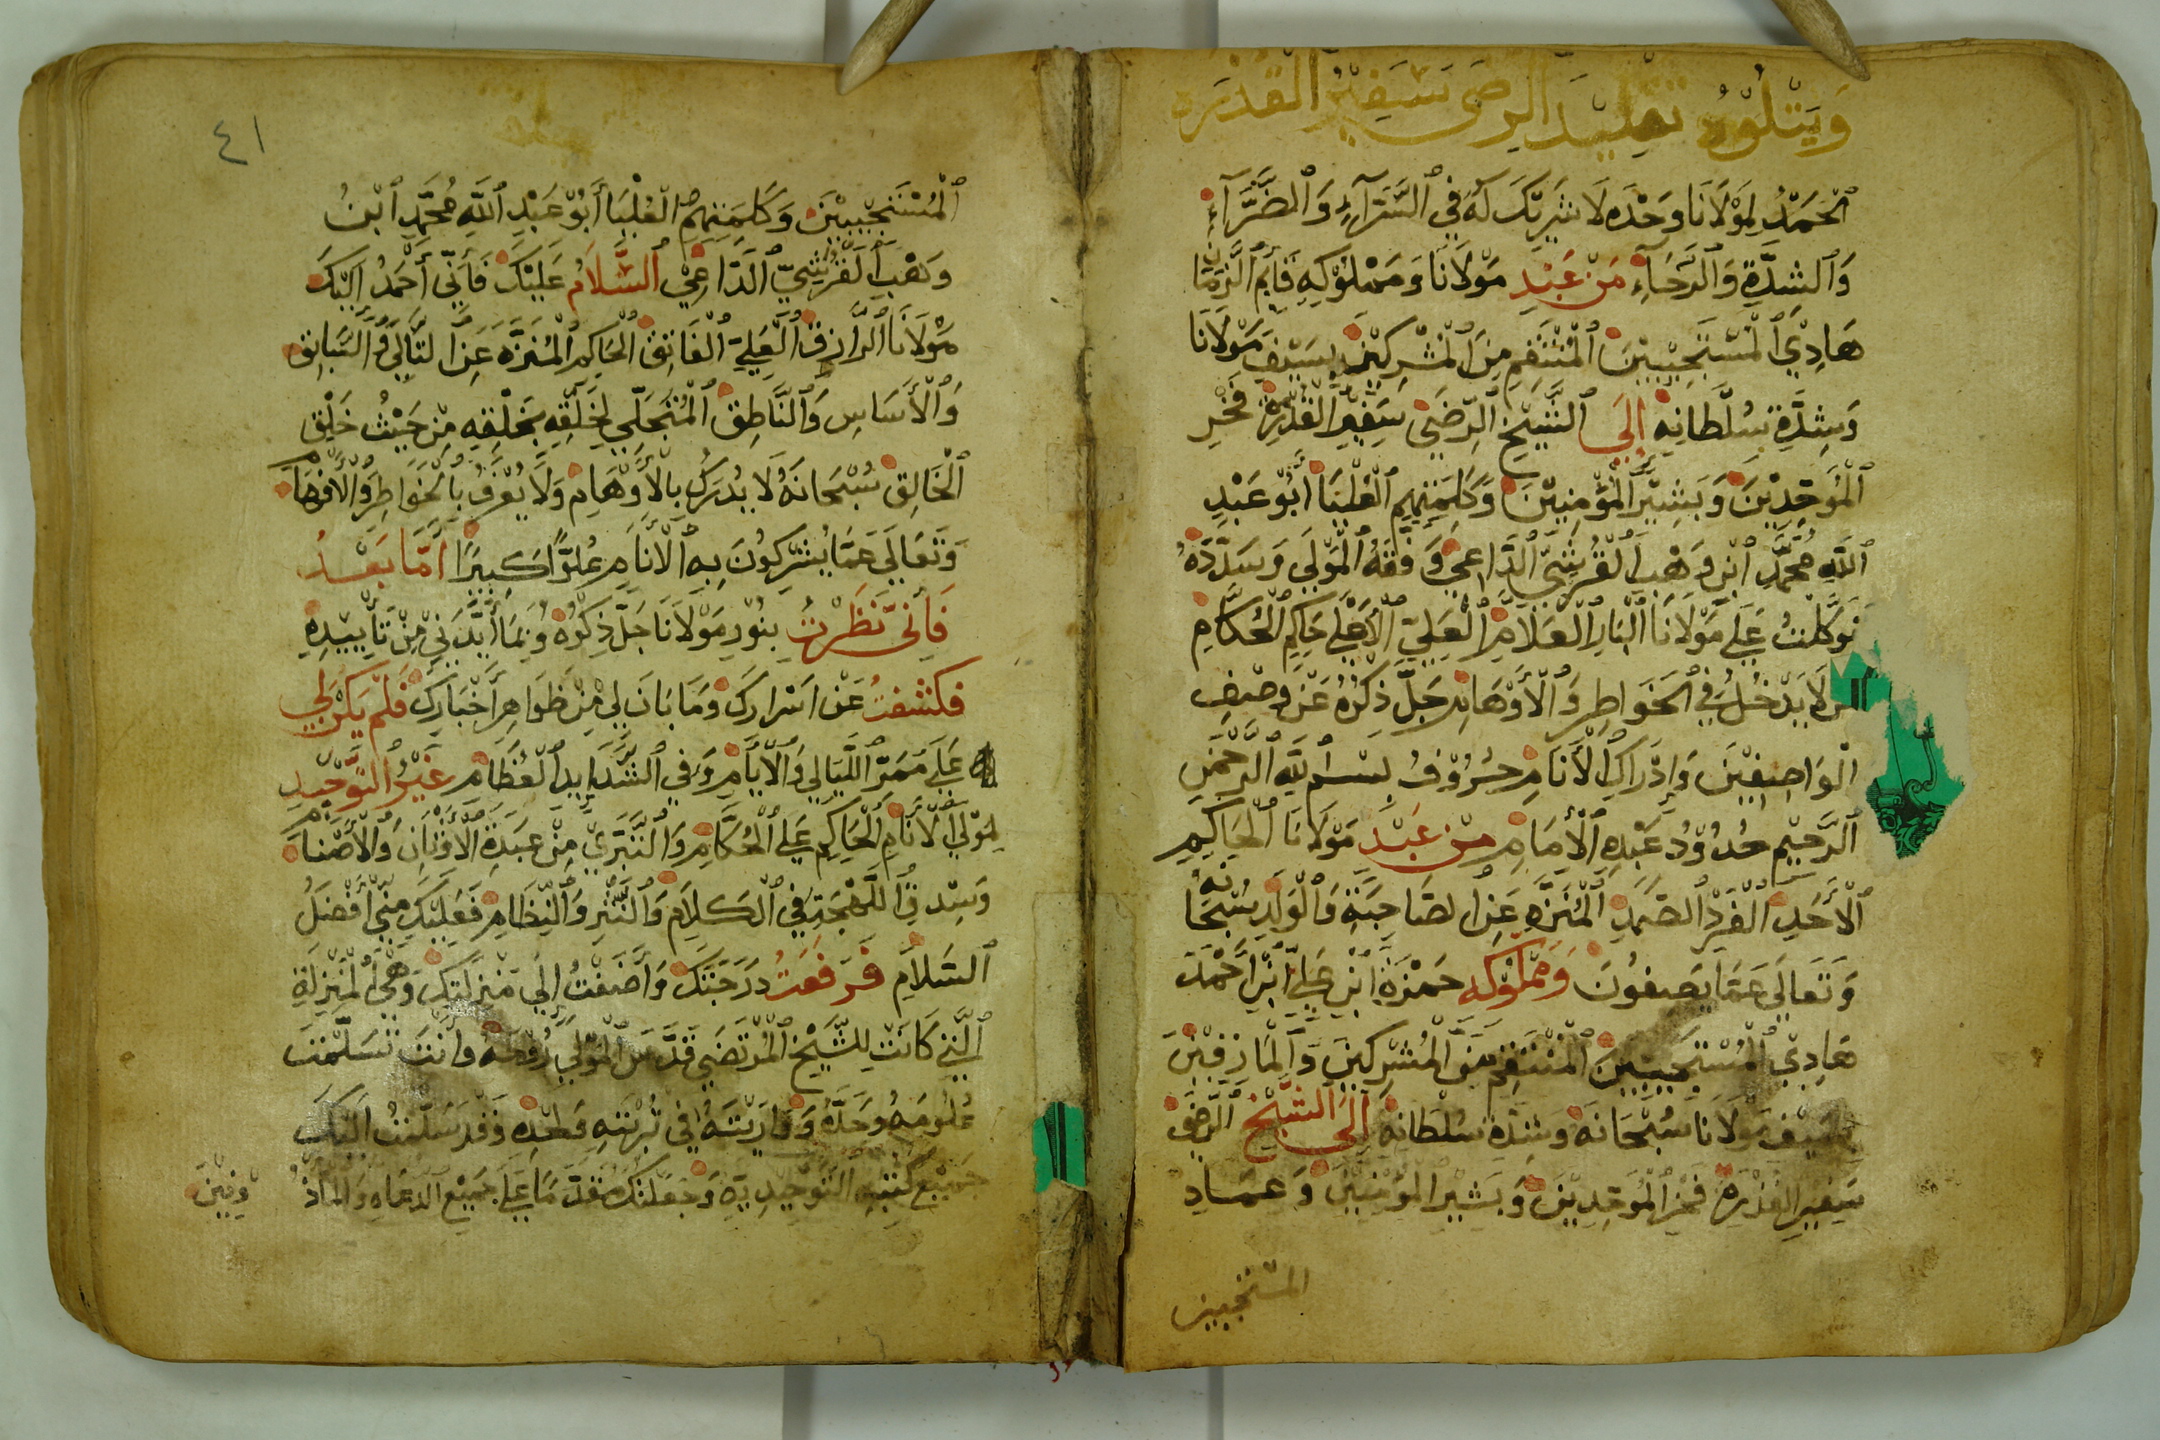 وَيَتْلُوهُ تَقْلِيدُ الرِّضَى سَفِيرِ القُدْرَة
اَلْحَمْدُ لِمَوْلَانَا وَحْدَهُ لَا شَرِيكَ لَهُ فِي السَّرَّآءِ وَالضَّرَّآءِ
وَالشِّدَّةِ وَالرَّخَآءِ مِنْ عَبْدِ مَوْلَانَا وَمَمْلُوْكِهِ قَآئِمِ الزَّمَانِ
هَادِيْ الْمُسْتَجِيْبِيْنَ الْمُنْتَقِمِ مِنَ الْمُشْرِكِيْنَ بِسَيْفِ مَوْلَانَا
وَشِدَّةِ سُلْطَانِهِ إِلَى الشَّيْخِ الرِّضَى سَفِيْرِ الْقُدْرَةِ فَخْرِ
الْمُوَحِّدِيْنَ وَبَشِيْرِ الْمُؤْمِنِيْنَ وَكَلِمَتِهِمِ الْعُلْيَا أَبُوْ عَبْدِ
اللهِ مُحَمَّدِ ابْنِ وَهْبِ الْقُرَشِيِّ الدَّاعِيْ وَفَّقَهُ الْمَوْلَى وَسَدَّدَهُ
تَوَكَّلْتُ عَلَى مَوْلَانَا الْبَارِ الْعَلَّامِ الْعَلِيِّ الْأَعْلَى حَاكِمِ الْحُكَّامِ
مَن لَا يَدْخُلُ فِي الْخَوَاطِرِ وَالْأَوْهَامِ جَلَّ ذِكْرُهُ عَنْ وَصْفِ
الْوَاصِفِيْنَ وَإِدْرَاكِ الْأَنَامِ حُرُوْفُ بِسْمِ اللهِ الرَّحْمٰنِ
الرَّحِيْمِ حُدُوْدُ عَبْدِهِ الْأِمَامِ مِنْ عَبْدِ مَوْلَانَا الْحَاكِمِ
الْأَحَدِ الْفَرْدِ الصَّمَدِ الْمُنَزَّهِ عَنِ الصَّاحِبَةِ وَالْوَلَدِ سُبْحَانَهُ
وَتَعَالَى عَمَّا يَصِفُونَ وَمَمْلُوْكِهِ حَمْزَةَ ابْنِ عَلِيِّ ابْنِ أَحْمَدَ
هَادِيْ الْمُسْتَجِيْبِيْنَ الْمُنْتَقِمِ مِنَ الْمُشْرِكِيْنَ وَالْمَارِقِيْنَ
بِسَيْفِ مَوْلَانَا سُبْحَانَهُ وَشِدَّةِ سُلْطَانِهِ إِلَى الشَّيْخِ الرِّضَى
سَفِيْرِ الْقُدْرَةِ فَخْرِ الْمُوَحِّدِيْنَ وَبَشِيْرِ الْمُؤْمِنِيْنَ وَعِمَادِ
المستجيبين
٤١
الْمُسْتَجِيْبِيْنَ وَكَلِمَتِهِمِ الْعُلْيَا أَبُوْ عَبْدِ اللهِ مُحَمَّدِ ابْنُ
وَهْبِ الْقُرَشِيّ الدَّاعِيْ السَّلَامُ عَلَيْكَ فَأَنِّي أَحْمَدُ إِلَيْكَ
مَوْلَانَا الرَّازِقِ الْعَلِيِّ الْفَاتِقِ الْحَاكِمِ الْمُنَزَّهِ عَنِ التَّالِي وَالسَّابِقِ
وَالْأَسَاسِ وَالنَّاطِقِ الْمُتَجَلِّي لِخَلْقِهِ بِخَلْقِهِ مِنْ حَيْثُ خَلْقِهِ
الْخَالِقِ سُبْحَانَهُ لَا يُدْرَكُ بِالْأَوْهَامِ وَلَا يُعْرَفُ بِالْخَوَاطِرِ وَالْأَفْهَامِ
وَتَعَالَى عَمَّا يُشْرِكُونَ بِهِ الْأَنَامِ عُلُوًّا كَبِيْرًا أَمَّا بَعْدُ
فَأَنِّي نَظَرْتُ بِنُوْرِ مَوْلَانَا جَلَّ ذِكْرُهُ وَبِمَا أَيَّدَنِيْ مِنْ تَأْيِيْدِهِ
فكشفتُ عَنْ اسْرارِكَ وَمَا بَانَ لِي مِنْ ظَوَاهِرِ أَخْبَارِكَ فَلَمْ يَكُنْ لِي
عَلَى مَمَرِّ اللَّيَالِي وَالْأَيَّامِ وَفِي الشَّدَايِدِ الْعُظَامِ غَيْرُ التَّوْحِيْدِ
لِمَوْلَى الْأَنَامِ الْحَاكِمِ عَلَى الْحُكَّامِ وَالتَّبَرِّيْ مِنْ عَبَدَةِ الْأَوْثَانِ وَالْأَصْنَامِ
وَسِدْقِ اللَّهْجَةِ فِي الْكَلَامِ وَالنَّثْرِ وَالنِّظَامِ فَعَلَيْكَ مِنِّي أَفْضَلُ
السَّلَامِ فَرَفَعْتُ دَرَجَتَكَ وَأَضَفْتُ إِلَى مَنْزِلَتِكَ وَهِيَ الْمَنْزِلَةِ
الَّتِي كَانَتْ لِلشَّيْخِ الْمُرْتَضَى قَدَّسَ الْمَوْلَى رُوْحَهُ وَأَنْتَ تَسَلَّمْتَ
عُلُومَهُ وَحْدَهُ وَوَارَيْتَهُ فِي تُرْبَتِهِ وَلَحْدِهِ وَقَدْ سَلَّمْتُ إِلَيْكَ
جَمِيْعَ كُتُبِهِ التَّوْحِيْدِيَّةِ وَجَعَلْتُكَ مُقَدَّمًا عَلَى جَمِيْعِ الدُّعَاهِ وَالْمَأْذُ
وْنِيْنَ